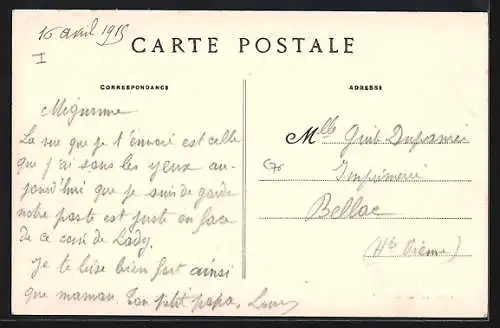 16 avril 1915
I
CARTE POSTALE
CORRESPONDANCE
ADRESSE
Mignonne
La vue que je t'envoie est celle
que j'ai sous les yeux au-
jourd'hui que je suis de garde
notre poste est juste en face
de ce coin de
Je te bise bien fort ainsi
que maman. Ton p'tit papa.
Mlle
Imprimerie
Bellac
(Hte Vienne)